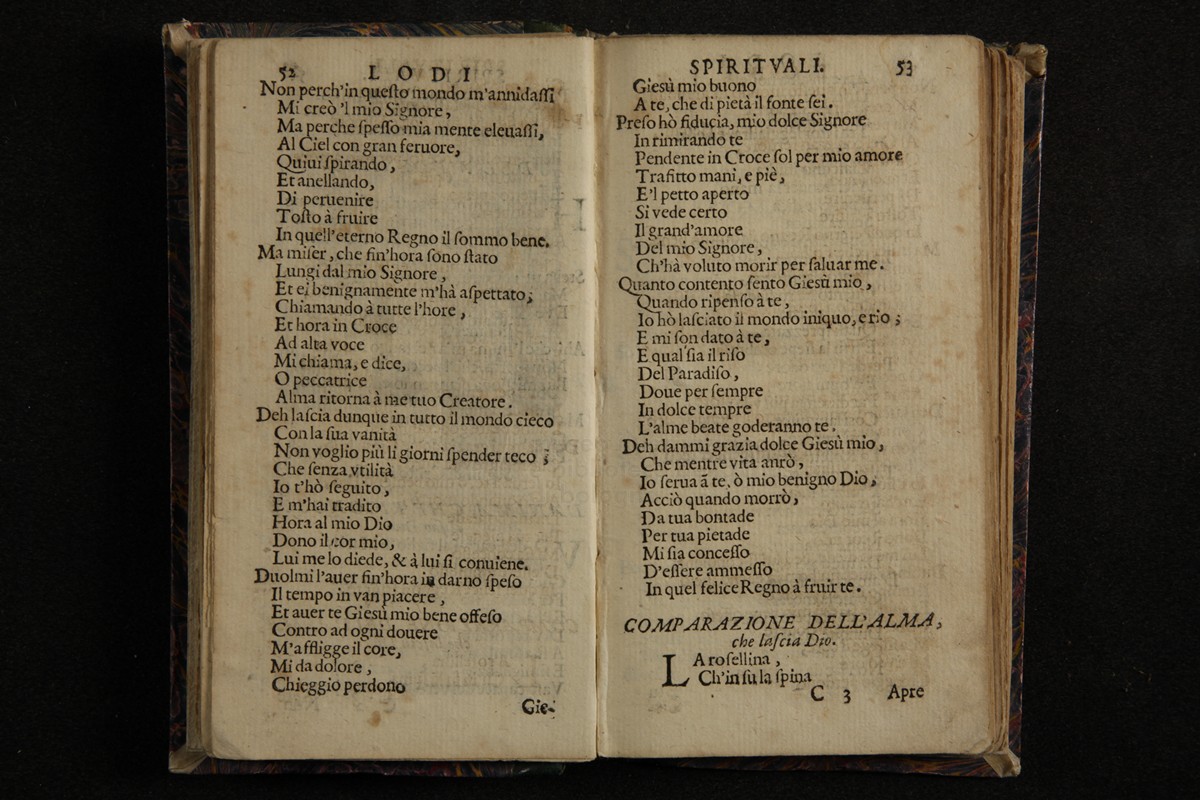 52 LODI
Non perch'in queſto mondo m'annidaſſi
Mi creò 'l mio Signore,
Ma perche ſpeſſo mia mente eleuaſſi,
Al Ciel con gran feruore,
Quiui ſpirando,
Et anellando,
Di peruenire
Toſto à fruire
In quell'eterno Regno il ſommo bene.
Ma miſer, che ſin'hora ſono ſtato
Lungi dal mio Signore,
Et ei benignamente m'hà aſpettato;
Chiamando à tutte l'hore,
Et hora in Croce
Ad alta voce
Mi chiama, e dice,
O peccatrice
Alma ritorna à me tuo Creatore.
Deh laſcia dunque in tutto il mondo cieco
Con la ſua vanità
Non voglio più li giorni ſpender teco;
Che ſenza vtilità
Io t'hò ſeguito,
E m'hai tradito
Hora al mio Dio
Dono il cor mio,
Lui me lo diede, & à lui ſi conuiene.
Duolmi l'auer ſin'hora in darno ſpeſo
Il tempo in van piacere,
Et auer te Giesù mio bene offeſo
Contro ad ogni douere
M'affligge il core,
Mi da dolore,
Chieggio perdono
Gie-
SPIRITVALI. 53
Giesù mio buono
A te, che di pietà il fonte ſei.
Preſo hò fiducia, mio dolce Signore
In rimirando te
Pendente in Croce ſol per mio amore
Trafitto mani, e piè,
E'l petto aperto
Si vede certo
Il grand'amore
Del mio Signore,
Ch'hà voluto morir per ſaluar me.
Quanto contento ſento Giesù mio,
Quando ripenſo à te,
Io hò laſciato il mondo iniquo, e rio;
E mi ſon dato à te,
E qual ſia il riſo
Del Paradiſo,
Doue per ſempre
In dolce tempre
L'alme beate goderanno te.
Deh dammi grazia dolce Giesù mio,
Che mentre vita aurò,
Io ſerua à te, ò mio benigno Dio,
Acciò quando morrò,
Da tua bontade
Per tua pietade
Mi ſia conceſſo
D'eſſere ammeſſo
In quel felice Regno à fruir te.
COMPARAZIONE DELL'ALMA,
che laſcia Dio.
LA roſellina,
Ch'in ſu la ſpina
C 3 Apre